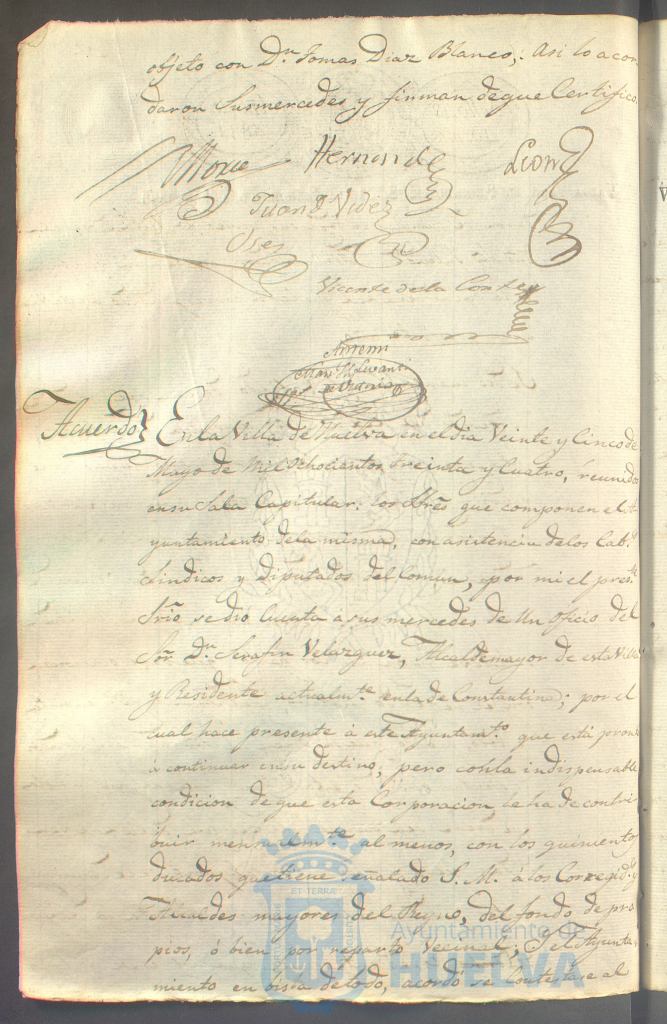 objeto con Dn. Tomas Diaz Blanco; Asi lo acor
daron Susmercedes y firman deque Certifico.
Hernandz
Leon
Juan d. Videz
Vicente de la Corte
Antemi
Acuerdo
En la Villa de Huelva en el dia Veinte y Cinco de
Mayo de Mil Ochocientos treinta y Cuatro, reunidos
en su Sala Capitular los Sres que componen el A
yuntamiento dela misma, con asistencia delos Cab.s
Sindicos y Diputados del Comun, por mi el preste.
Srio se dió Cuenta á sus mercedes de un oficio del
Sor Dn. Serafin Velazquez, Alcaldemayor de esta Villa
y Residente actualmte. enla de Constantina; por el
cual hace presente á este Ayuntamto. que está pron
á continuar en su destino, pero conla indispensable
condicion de que esta Corporacion, le ha de contri
buir mensualmte. al menos, con los quinientos
ducados que tiene señalado S. M. á los Corregid.s y
Alcaldes mayores del Reyno, del fondo de pro
pios, ó bien por reparto Vecinal; I el Ayunta
miento en vista de todo, acordó se Conteste al
ET TERRÆ
Ayuntamiento de
HUELVA